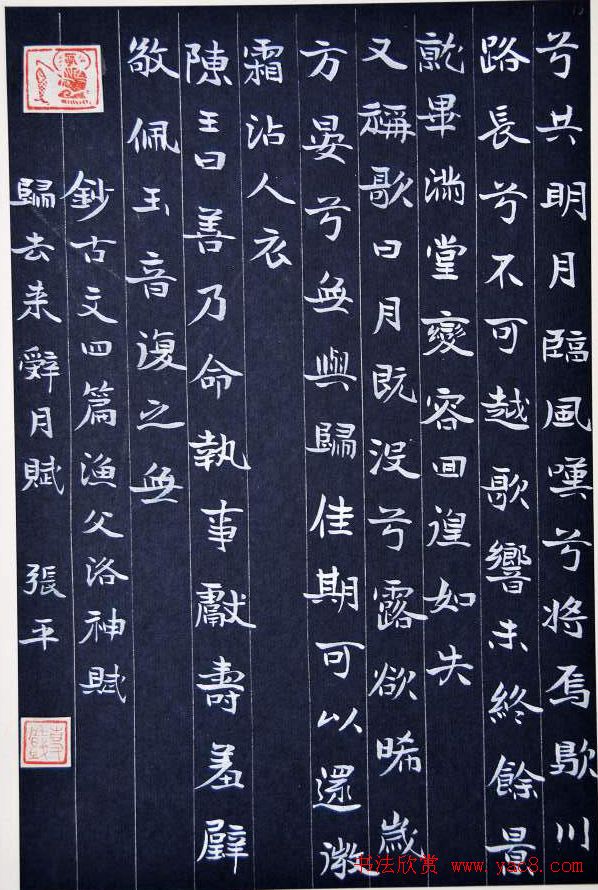 兮共明月臨風嘆兮將焉歇川
路長兮不可越歌響未終餘景
就畢滿堂變容回遑如失
又稱歌曰月既没兮露欲晞歲
方晏兮無與歸佳期可以還微
霜沾人衣
陳王曰善乃命執事獻壽羞璧
敬佩玉音復之無
鈔古文四篇漁父洛神賦
歸去来辭月賦 張平
书法欣赏 www.yac8.com